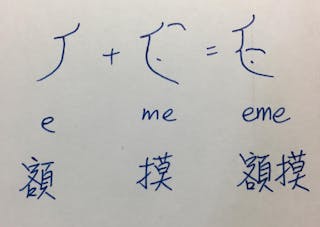 + =
e me eme
額 摸 額摸